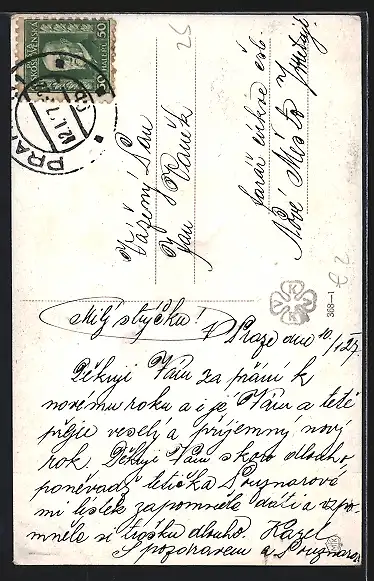 ČESKOSLOVENSKÁ
50 HALÉŘŮ 50
PRAHA
12.I.7
25
Vážený Pan
Jan
farář církve čsl.
Nové Město
368-1
Milý strýčku!
V Praze dne 10./I. 27.
Děkuji Vám za přání k
novému roku a i já Vám a tetě
přeji veselý a příjemný nový
rok. Děkuji Vám skoro dlouho
poněvadž tetička
mi lístek zapomněla dáti a vzpo-
mněla si trošku dlouho. Karel
S pozdravem a